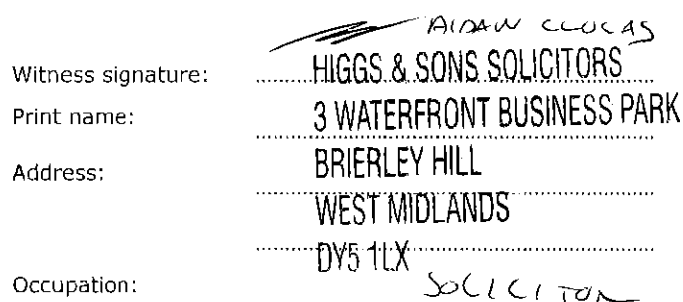 AIDAN CLUCAS
Witness signature: HIGGS & SONS SOLICITORS
Print name: 3 WATERFRONT BUSINESS PARK
Address: BRIERLEY HILL
WEST MIDLANDS
DY5 1LX
Occupation: SOLICITOR